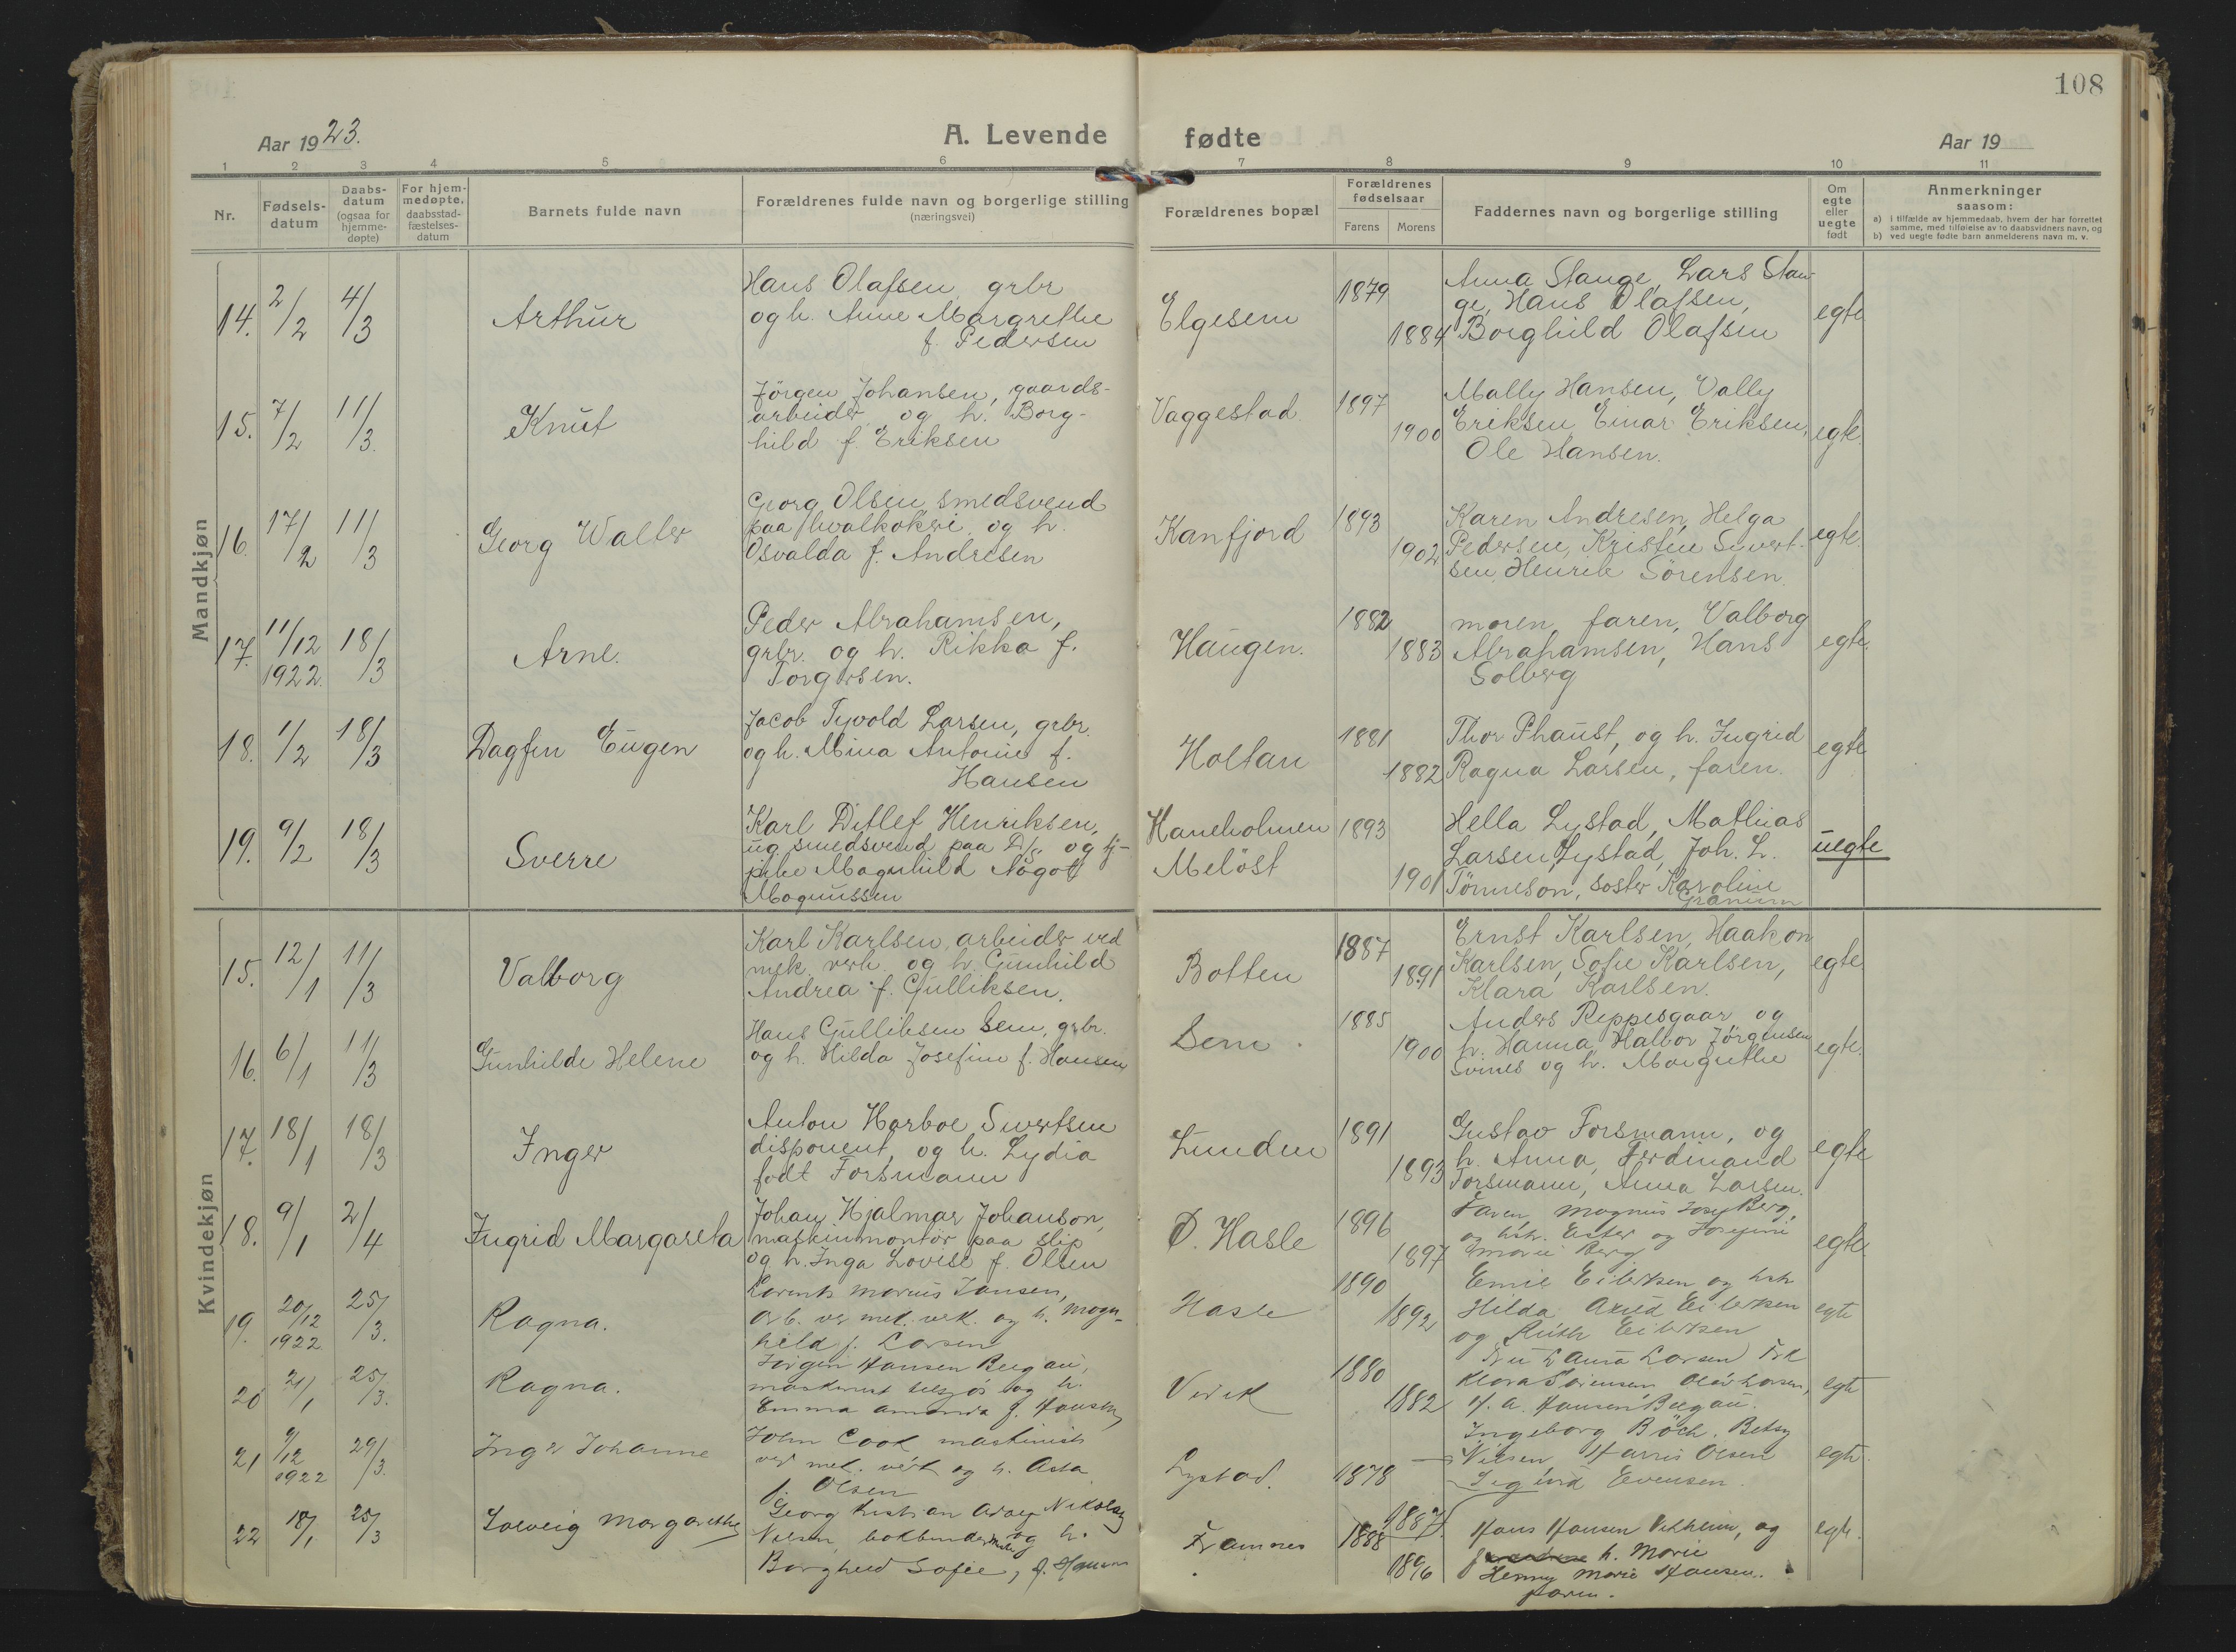 108
Aar 1923.
A. Levende fødte
Aar 19
1 2 3 4 5 6 7 8 9 10 11
Nr.
Fødsels-
datum
Daabs-
datum
(ogsaa for
hjemme-
døpte)
For hjem-
medøpte,
daabsstad-
fæstelses-
datum
Barnets fulde navn
Forældrenes fulde navn og borgerlige stilling
(næringsvei)
Forældrenes bopæl
Forældrenes
fødselsaar
Farens Morens
Faddernes navn og borgerlige stilling
Om
egte
eller
uegte
født
Anmerkninger
saasom:
a) i tilfælde av hjemmedaab, hvem der har forrettet
samme, med tilføielse av to daabsvidners navn, og
b) ved uegte fødte barn anmelderens navn m. v.
Mandkjøn
14. 2/2 4/3
Arthur
Hans Olafsen, grbr
og h. Anne Margrethe
f. Pedersen
Elgesem
1879
1884
Anna Stange, Lars Stan
ge, Hans Olafsen,
Borghild Olafsen
egte
15. 7/2 11/3.
Knut
Jörgen Johansen, gaards-
arbeider og h. Borg-
hild f. Eriksen
Vaggestad
1897
1900
Mally Hansen, Vally
Eriksen, Einar Eriksen,
Ole Hansen.
egte.
16. 17/2 11/3
Georg Walter
Georg Olsen, smedsvend
paa hvalkokeri og h.
Osvalda f. Andresen
Kamfjord
1893
1902
Karen Andresen, Helga
Pedersen, Kristine Syvert-
sen, Henrik Sörensen.
egte.
17. 11/12 18/3
1922.
Arne.
Peder Abrahamsen,
grbr. og h. Rikka f.
Torgersen.
Haugen.
1882
1883
moren, faren, Valborg
Abrahamsen, Hans
Solberg
egte.
18. 1/2 18/3
Dagfin Eugen
Jacob Tyvold Larsen, grbr.
og h. Mina Antonie f.
Hansen
Holtan
1881
1882
Thor Phaust, og h. Ingrid
Ragna Larsen, faren.
egte
19. 9/2 18/3
Sverre
Karl Ditlef Henriksen,
ug smedsvend paa D/S og tj-
pike Magnhild Nagot
Magnussen
Haneholmen
Melöst
1893
1901
Hella Lystad, Mathias
Larsen Lystad, Joh. L.
Tönneson, söster Karoline
Granum
uegte
Kvindekjøn
15. 12/1 11/3
Valborg
Karl Karlsen, arbeider ved
mek. verk. og h. Gunhild
Andrea f. Gulliksen.
Botten
1887
1891
Ernst Karlsen, Haakon
Karlsen, Sofie Karlsen,
Klara Karlsen.
egte
16. 6/1 11/3
Gunhilde Helene
Hans Gulliksen Sem, grbr.
og h. Hilda Josefine f. Hansen
Sem
1885
1900
Anders Reppesgaar og
h. Hanna, Halvor Jörgensen
Svines og h. Margrethe
egte.
17. 18/1 18/3
Inger
Anton Harboe Sivertsen
disponent, og h. Lydia
födt Forsmann
Lunden
1891
1893
Gustav Forsmann, og
h. Anna, Ferdinand
Forsmann, Anna Larsen.
egte
18. 9/1 2/4
Ingrid Margareta
Johan Hjalmar Johanson,
maskinmontör paa slip
og h. Inga Lovise f. Olsen
Ö. Hasle
1896
1897
Faren, Magnus Berg,
og hstr. Ester og Josefine
Marie Berg
egte
19. 20/12 25/3.
1922
Ragna.
Lorents Marius Jansen,
arb. ver mek. verk. og h. Magn-
hild f. Larsen
Hasle
1890
1892
Emil Eilertsen og hstr
Hilda Arvid Eilertsen
og Ruth Eilertsen
egte
20 21/1 25/3.
Ragna.
Jörgen Hansen Bergau,
maskinist tilsjös og h.
Emma Amanda f. Hansen
Virik
1880
1882
Fru Laura Larsen Frk
Klara Sörensen Olav Larsen,
H. A. Hansen Bergau.
egte
21 9/12 29/3.
1922
Inga Johanne
John Cook maskinist
ver mek. verk og h. Asta
f. Olsen
Lystad.
1878
1887
Ingeborg Böch. Betsy
Nilsen, Harris Olsen
Sigurd Evensen.
egte.
22 18/1 25/3
Solveig Margarethe
Georg Kristian Nikolay
Nilsen, bokbinder og h.
Borghild Sofie, f. Hansen
Framnes
1888
1896
Hans Hansen, og
h. Marie
Henny Marie Hansen.
faren.
egte.